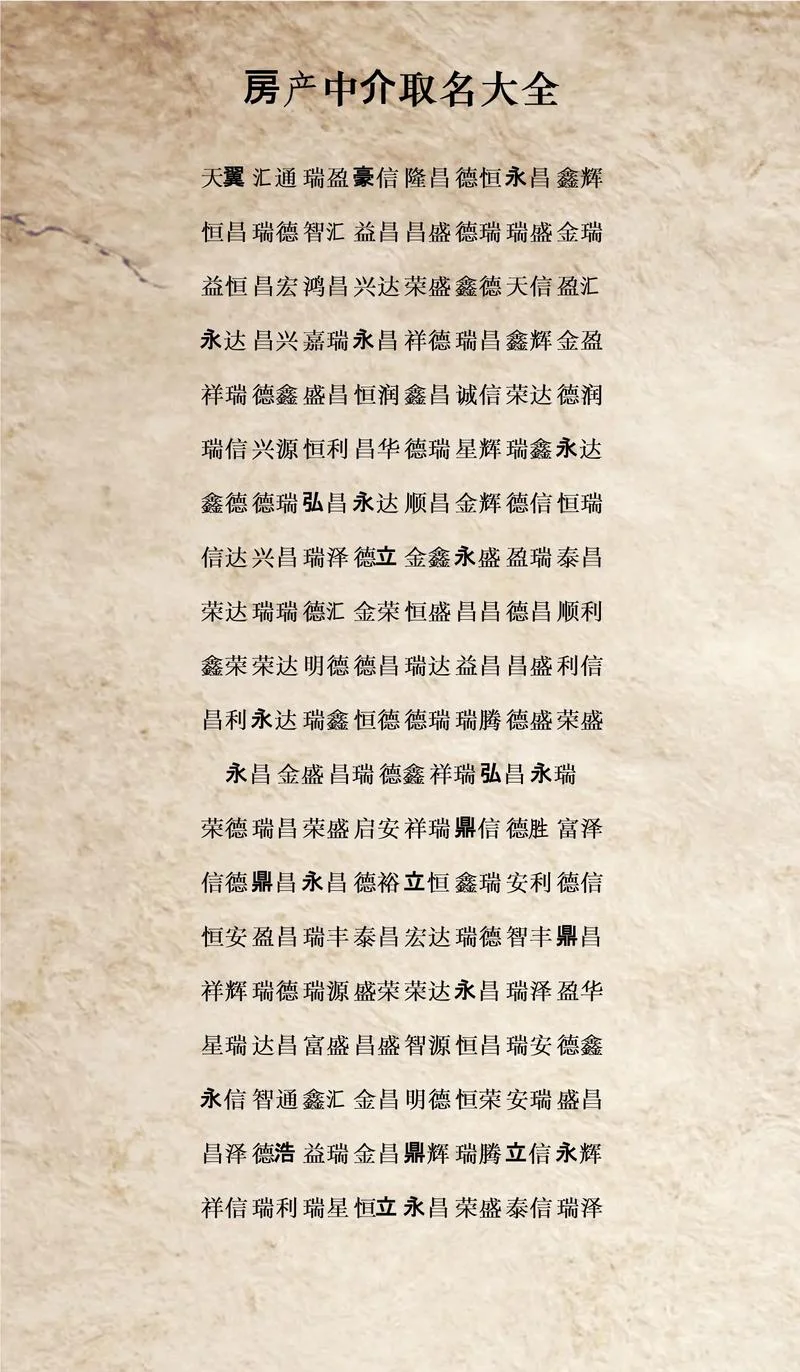 房产中介取名大全
天翼 汇通 瑞盈 豪信 隆昌 德恒 永昌 鑫辉
恒昌 瑞德 智汇 益昌 昌盛 德瑞 瑞盛 金瑞
益恒 昌宏 鸿昌 兴达 荣盛 鑫德 天信 盈汇
永达 昌兴 嘉瑞 永昌 祥德 瑞昌 鑫辉 金盈
祥瑞 德鑫 盛昌 恒润 鑫昌 诚信 荣达 德润
瑞信 兴源 恒利 昌华 德瑞 星辉 瑞鑫 永达
鑫德 德瑞 弘昌 永达 顺昌 金辉 德信 恒瑞
信达 兴昌 瑞泽 德立 金鑫 永盛 盈瑞 泰昌
荣达 瑞瑞 德汇 金荣 恒盛 昌昌 德昌 顺利
鑫荣 荣达 明德 德昌 瑞达 益昌 昌盛 利信
昌利 永达 瑞鑫 恒德 德瑞 瑞腾 德盛 荣盛
永昌 金盛 昌瑞 德鑫 祥瑞 弘昌 永瑞
荣德 瑞昌 荣盛 启安 祥瑞 鼎信 德胜 富泽
信德 鼎昌 永昌 德裕 立恒 鑫瑞 安利 德信
恒安 盈昌 瑞丰 泰昌 宏达 瑞德 智丰 鼎昌
祥辉 瑞德 瑞源 盛荣 荣达 永昌 瑞泽 盈华
星瑞 达昌 富盛 昌盛 智源 恒昌 瑞安 德鑫
永信 智通 鑫汇 金昌 明德 恒荣 安瑞 盛昌
昌泽 德浩 益瑞 金昌 鼎辉 瑞腾 立信 永辉
祥信 瑞利 瑞星 恒立 永昌 荣盛 泰信 瑞泽